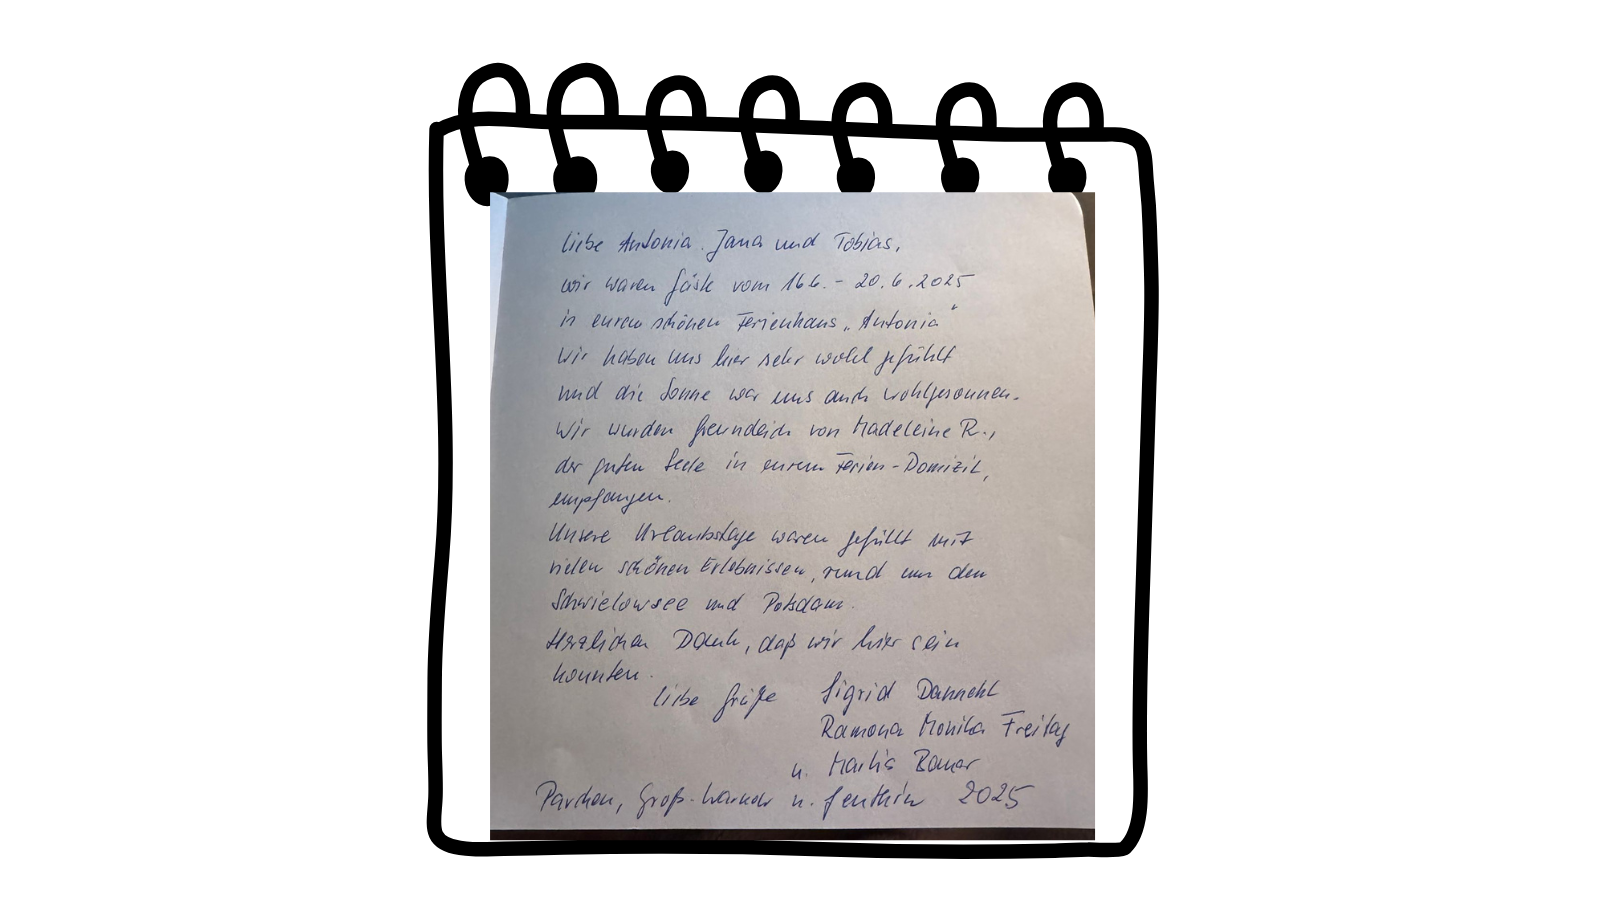 liebe Antonia, Jana und Tobias,
wir waren Gäste vom 16.6. - 20.6.2025
in eurem schönen Ferienhaus „Antonia"
Wir haben uns hier sehr wohl gefühlt
und die Sonne war uns auch wohlgesonnen.
Wir wurden freundlich von Madeleine R.,
der guten Seele in eurem Ferien-Domizil,
empfangen.
Unsere Urlaubstage waren gefüllt mit
vielen schönen Erlebnissen, rund um den
Schwielowsee und Potsdam.
Herzlichen Dank, daß wir hier sein
konnten.
liebe Grüße Sigrid
Ramona Monika Freitag
u.
Parchen, u. Genthin 2025